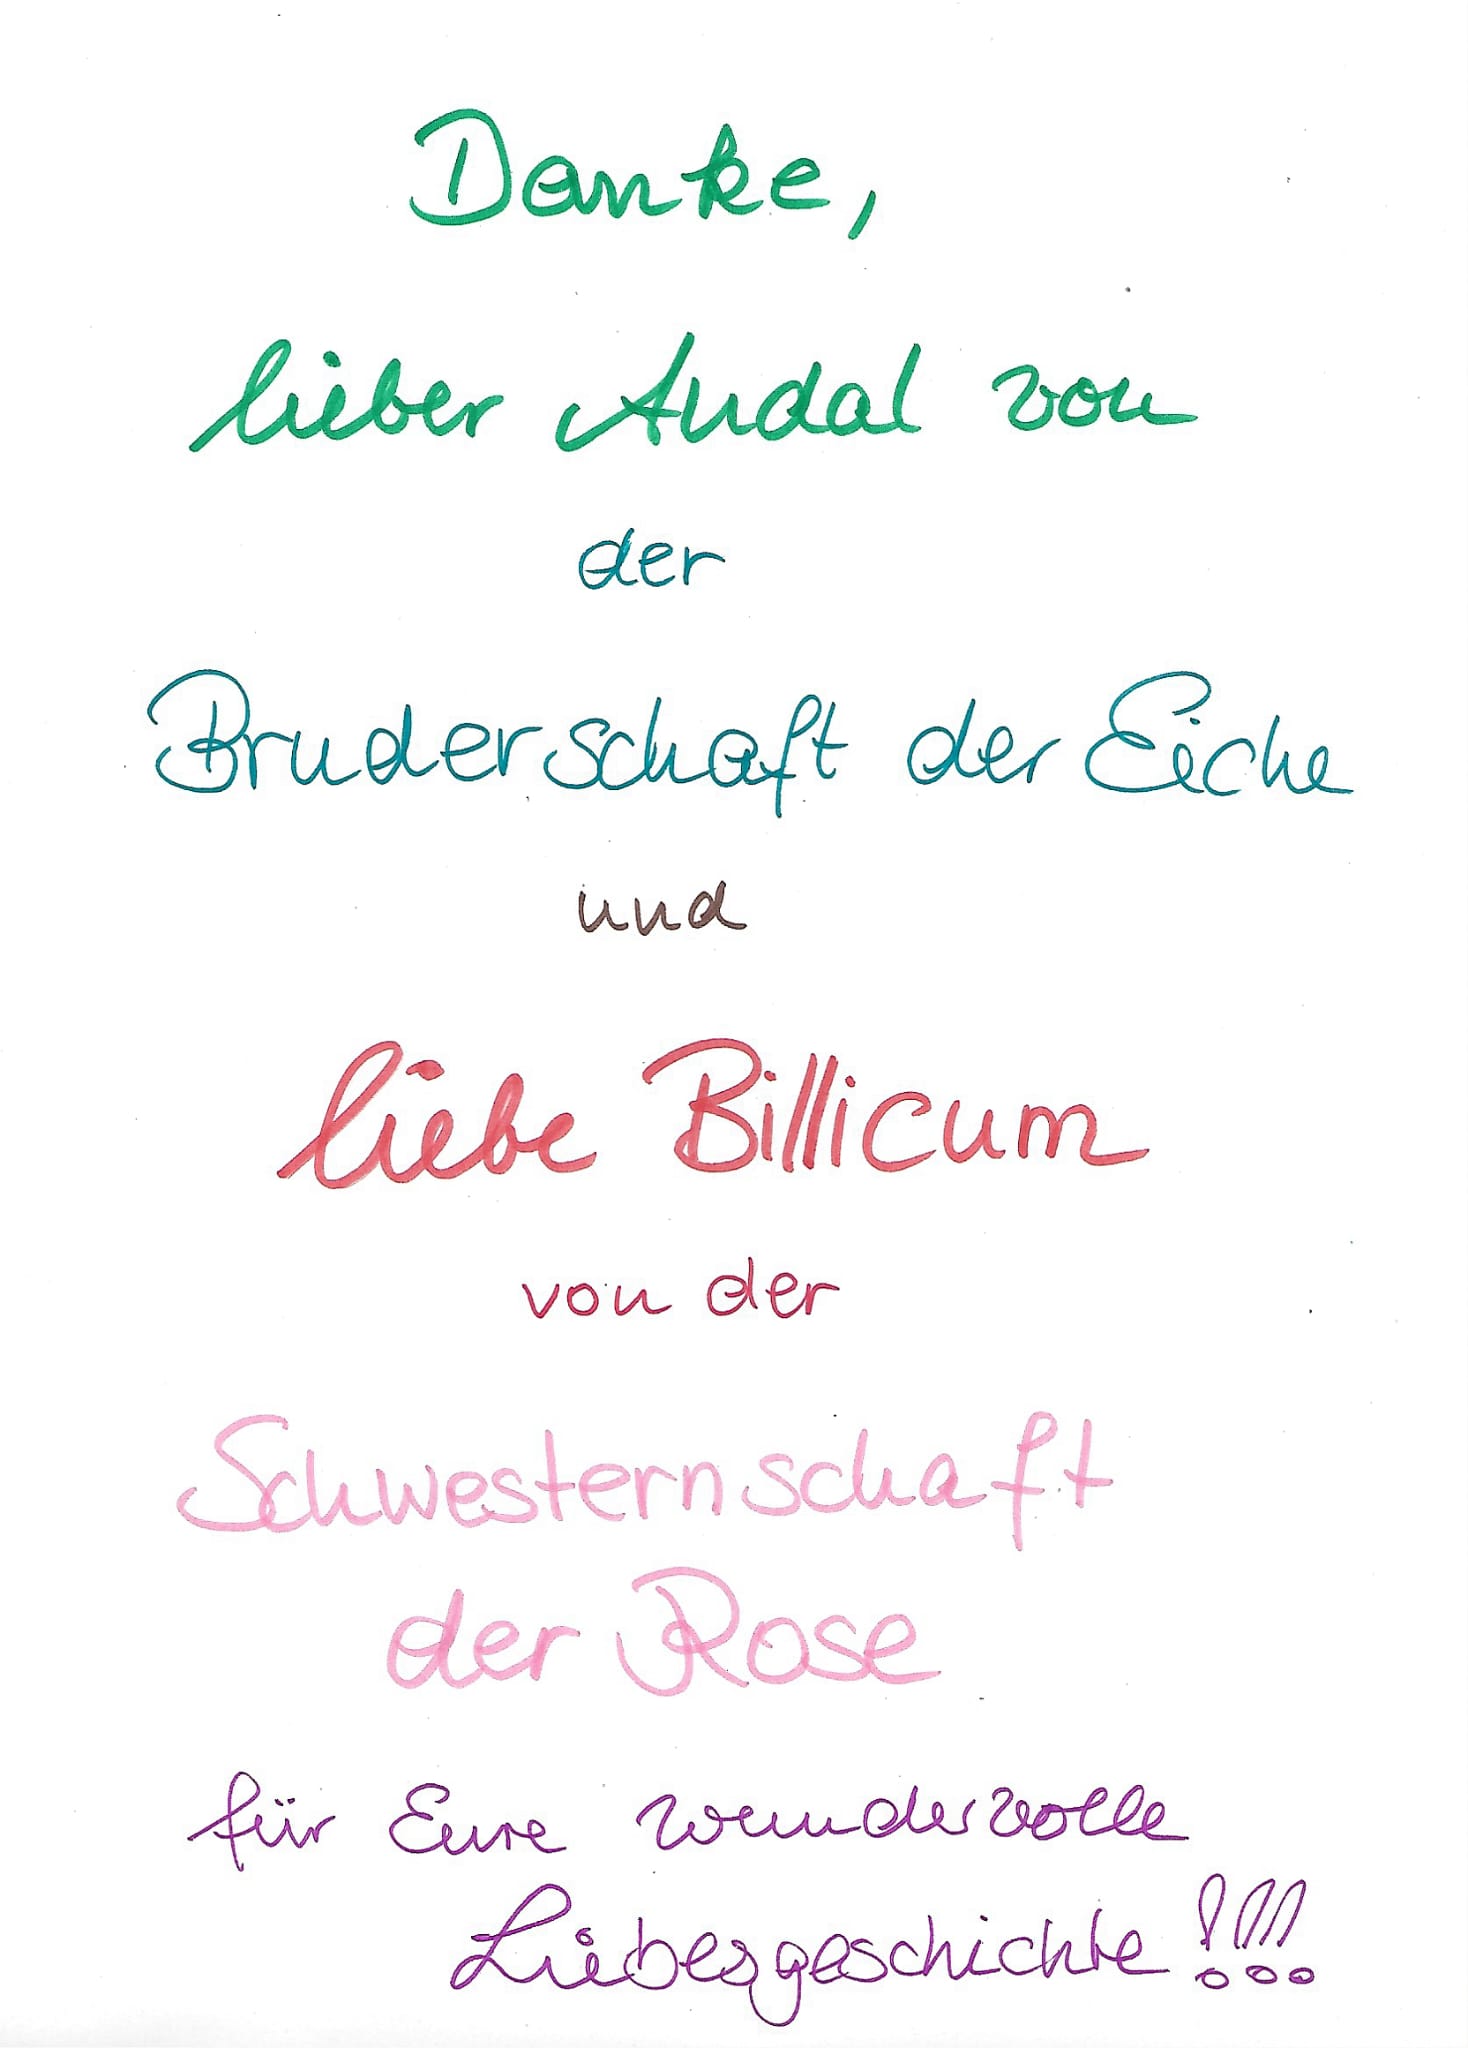 Danke,
lieber Andal von
der
Bruderschaft der Eiche
und
liebe Billicum
von der
Schwesternschaft
der Rose
für Eure wundervolle
Liebesgeschichte!!!